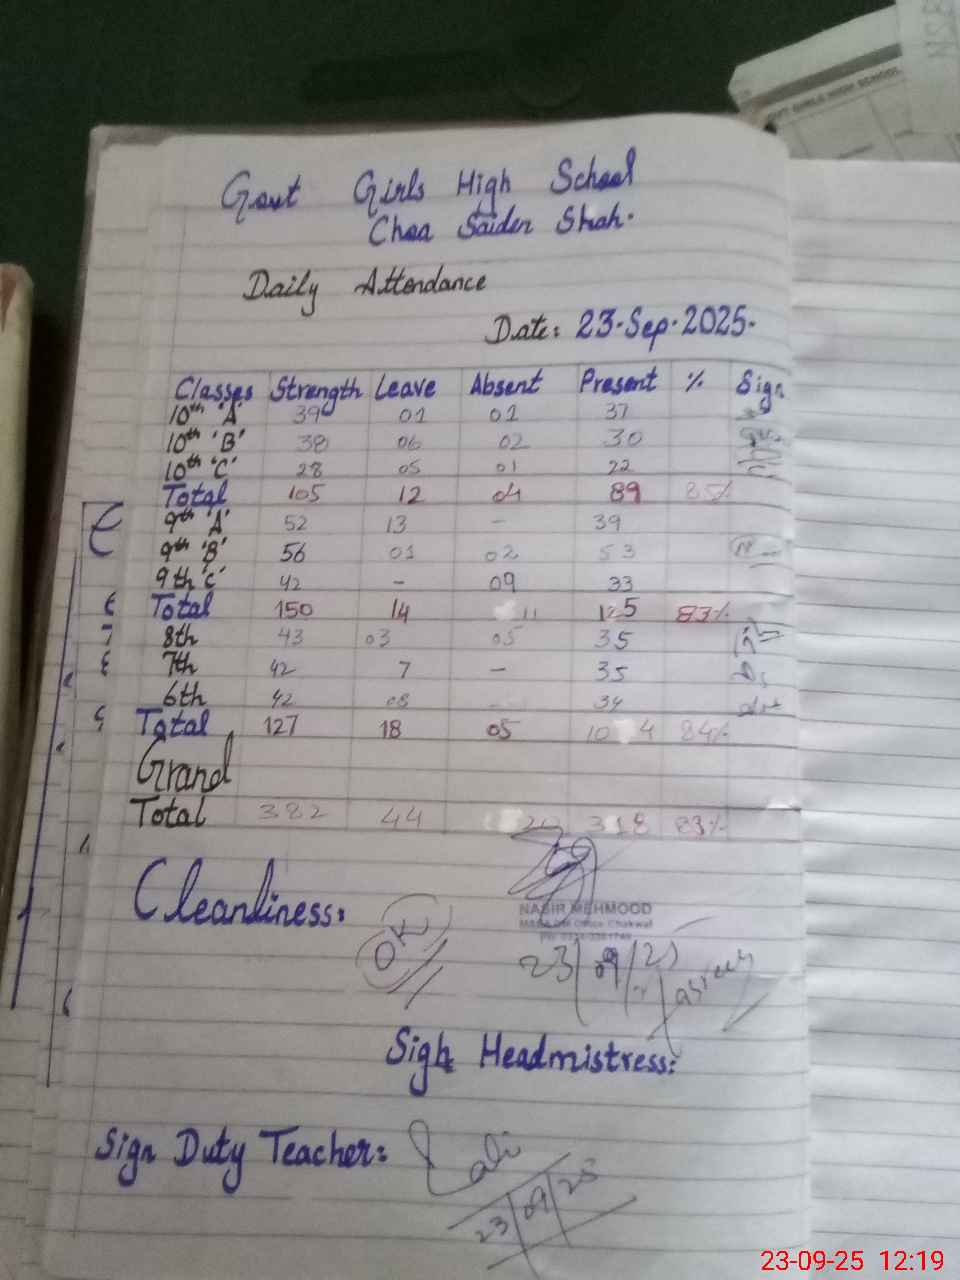 GOVT GIRLS HIGH SCHOOL
Govt Girls High School
Choa Saiden Shah.
Daily Attendance
Date: 23-Sep-2025.
Classes Strength Leave Absent Present % Sign
10th 'A' 39 01 01 37
10th 'B' 38 06 02 30
10th 'C' 28 05 01 22
Total 105 12 04 89 85%
9th 'A' 52 13 - 39
9th 'B' 56 01 02 53
9th 'C' 42 - 09 33
Total 150 14 11 125 83%
8th 43 03 05 35
7th 42 7 - 35
6th 42 08 34
Total 127 18 05 104 84%
Grand
Total 382 44 20 318 83%
Cleanliness:
OK
NASIR MEHMOOD
23/09/25
Sign Headmistress:
Sign Duty Teacher:
23/09/25
23-09-25 12:19